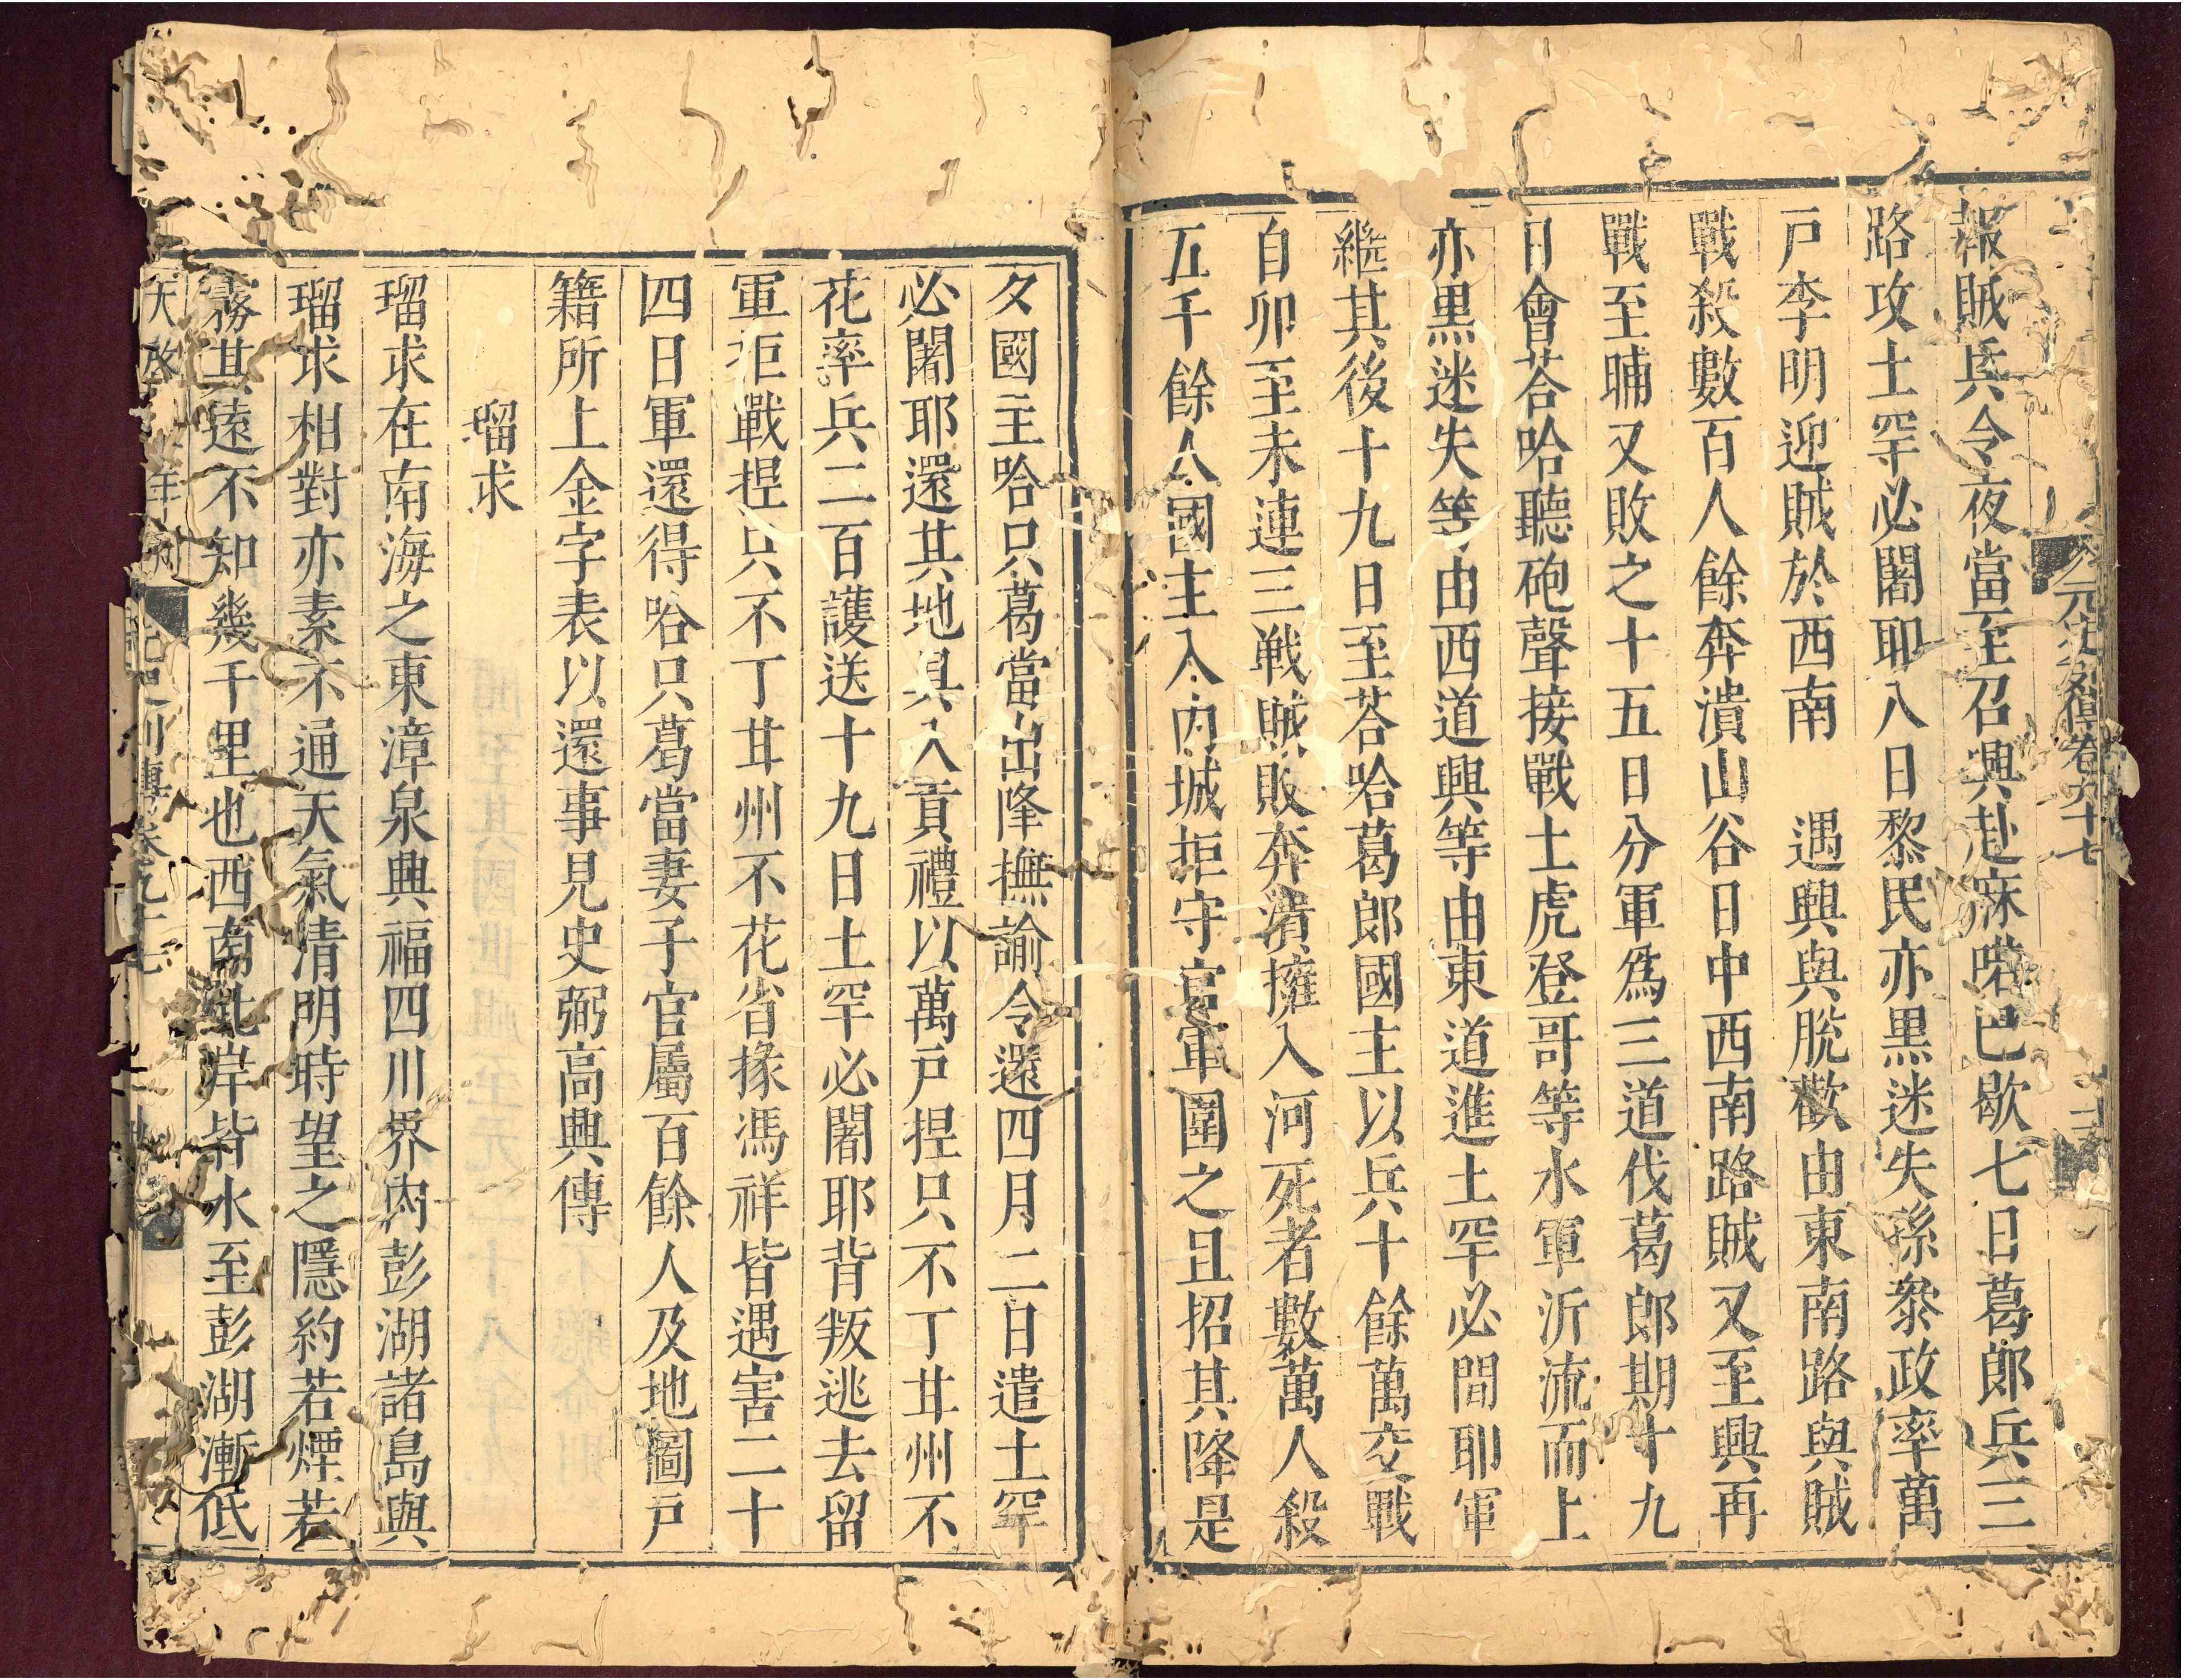 元史列傳卷九十七
報賊兵令夜當至召興赴寐喏巴歇七日葛郎兵三
路攻土罕必闍耶八日黎民亦黑迷失孫叅政率萬
戸李明迎賊於西南 遇興與脫歡由東南路與賊
戰殺數百人餘奔潰山谷日中西南路賊又至興再
戰至晡又敗之十五日分軍爲三道伐葛郎期十九
日會荅哈聽砲聲接戰土虎登哥等水軍沂流而上
亦黑迷失等由西道興等由東道進土罕必闍耶軍
繼其後十九日至荅哈葛郎國主以兵十餘萬交戰
自卯至未連三戰賊敗奔潰擁入河死者數萬人殺
五千餘人國主入內城拒守官軍圍之且招其降是
夕國主哈只葛當出降撫諭令還四月二日遣土罕
必闍耶還其地具入貢禮以萬戸捏只不丁甘州不
花率兵二百護送十九日土罕必闍耶背叛逃去留
軍拒戰捏只不丁甘州不花省掾馮祥皆遇害二十
四日軍還得哈只葛當妻子官屬百餘人及地圖戸
籍所上金字表以還事見史弼高興傳
瑠求
瑠求在南海之東漳泉興福四川界內彭湖諸島與
瑠求相對亦素不通天氣清明時望之隱約若煙若
霧其遠不知幾千里也西南北岸皆水至彭湖漸低
天啓 年刊 列傳卷九十七